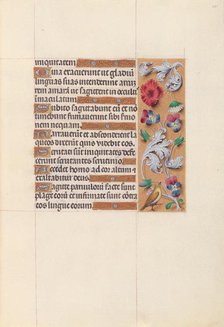 iniquitatem.
Quia exacuerunt ut gladiu
linguas suas intenderunt arcum
rem amara ut sagittent in occult
inmaculatum
Subito sagittabunt eum et no
timebunt firmaverunt sibi ser
nequam
Narraverunt ut absconderent
laqueos dixerunt quis videbit eos.
Scrutati sunt iniquitates de
fecerunt scrutantes scrutinio
Accedet homo ad cor altum et
exaltabitur deus.
Sagitte parvulorum facte sunt
plage eorum et infirmate sunt contra
eos lingue eorum